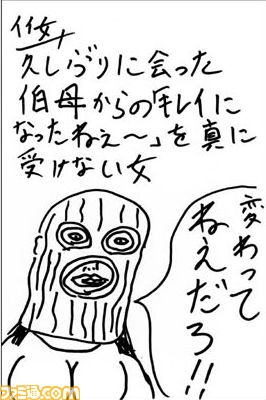 竹女
久しぶりに会った
伯母からの「キレイに
なったねぇ〜」を真に
受けない女
変わって
ねえだろ!!
ファミ通.com